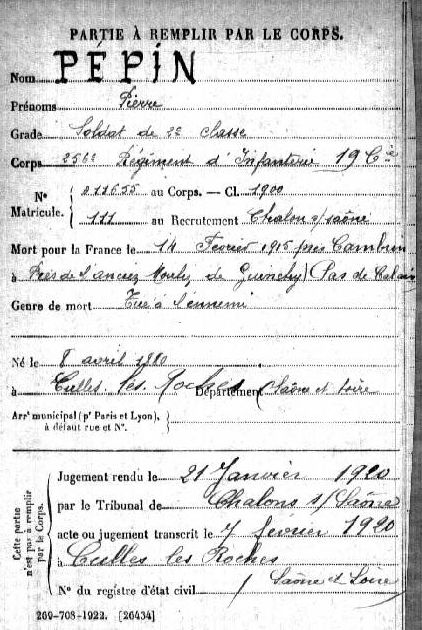 PARTIE À REMPLIR PAR LE CORPS.
Nom PÉPIN
Prénoms Pierre
Grade Soldat de 2e classe
Corps 256e Régiment d'Infanterie 19 Cie
N° Matricule. { 011655 au Corps. — Cl. 1900
111 au Recrutement Chalon s/ Saône
Mort pour la France le 14 Février 1915 près Cambrin
à Près de l'ancien de Guinchy (Pas de Calais
Genre de mort Tué à l'ennemi
Né le 8 avril
à Culles les Roches Département Saône et Loire
Arrt municipal (pr Paris et Lyon),
à défaut rue et N°.
Cette partie n'est pas à remplir par le Corps.
Jugement rendu le 21 Janvier 1920
par le Tribunal de Chalons s/ Saône
acte ou jugement transcrit le 7 février 1920
à Culles les Roches
Saône et Loire
N° du registre d'état civil
269-708-1922. [26434]